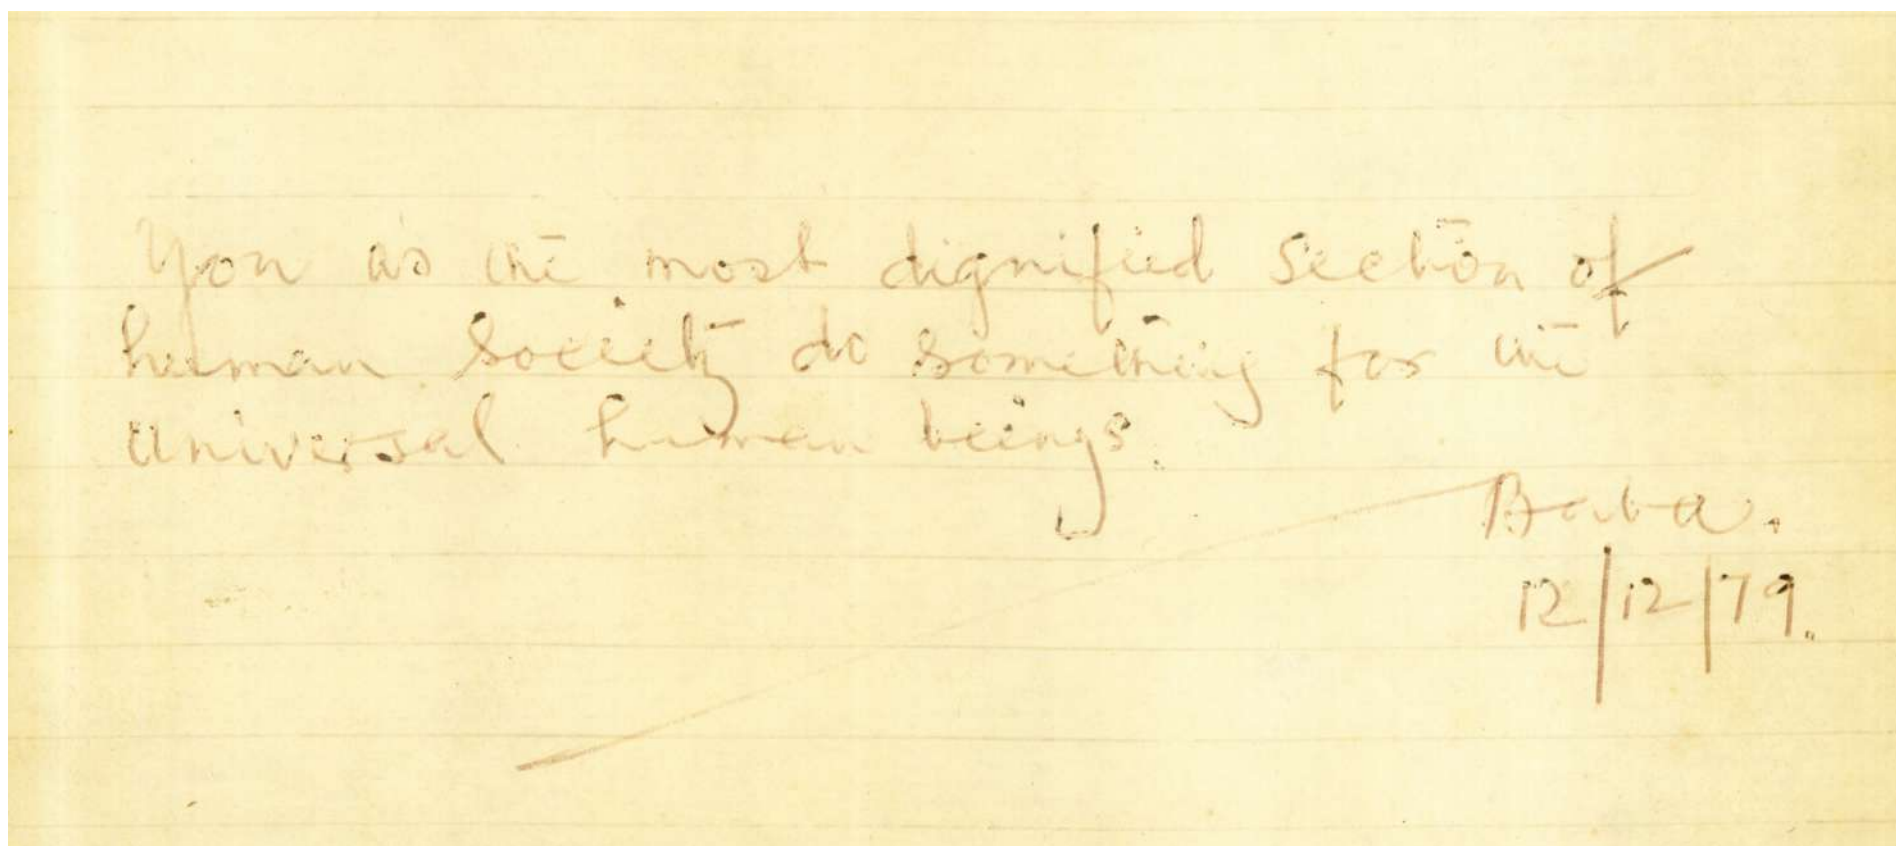 You as the most dignified section of
human society do something for the
universal human beings.
Baba.
12/12/79.